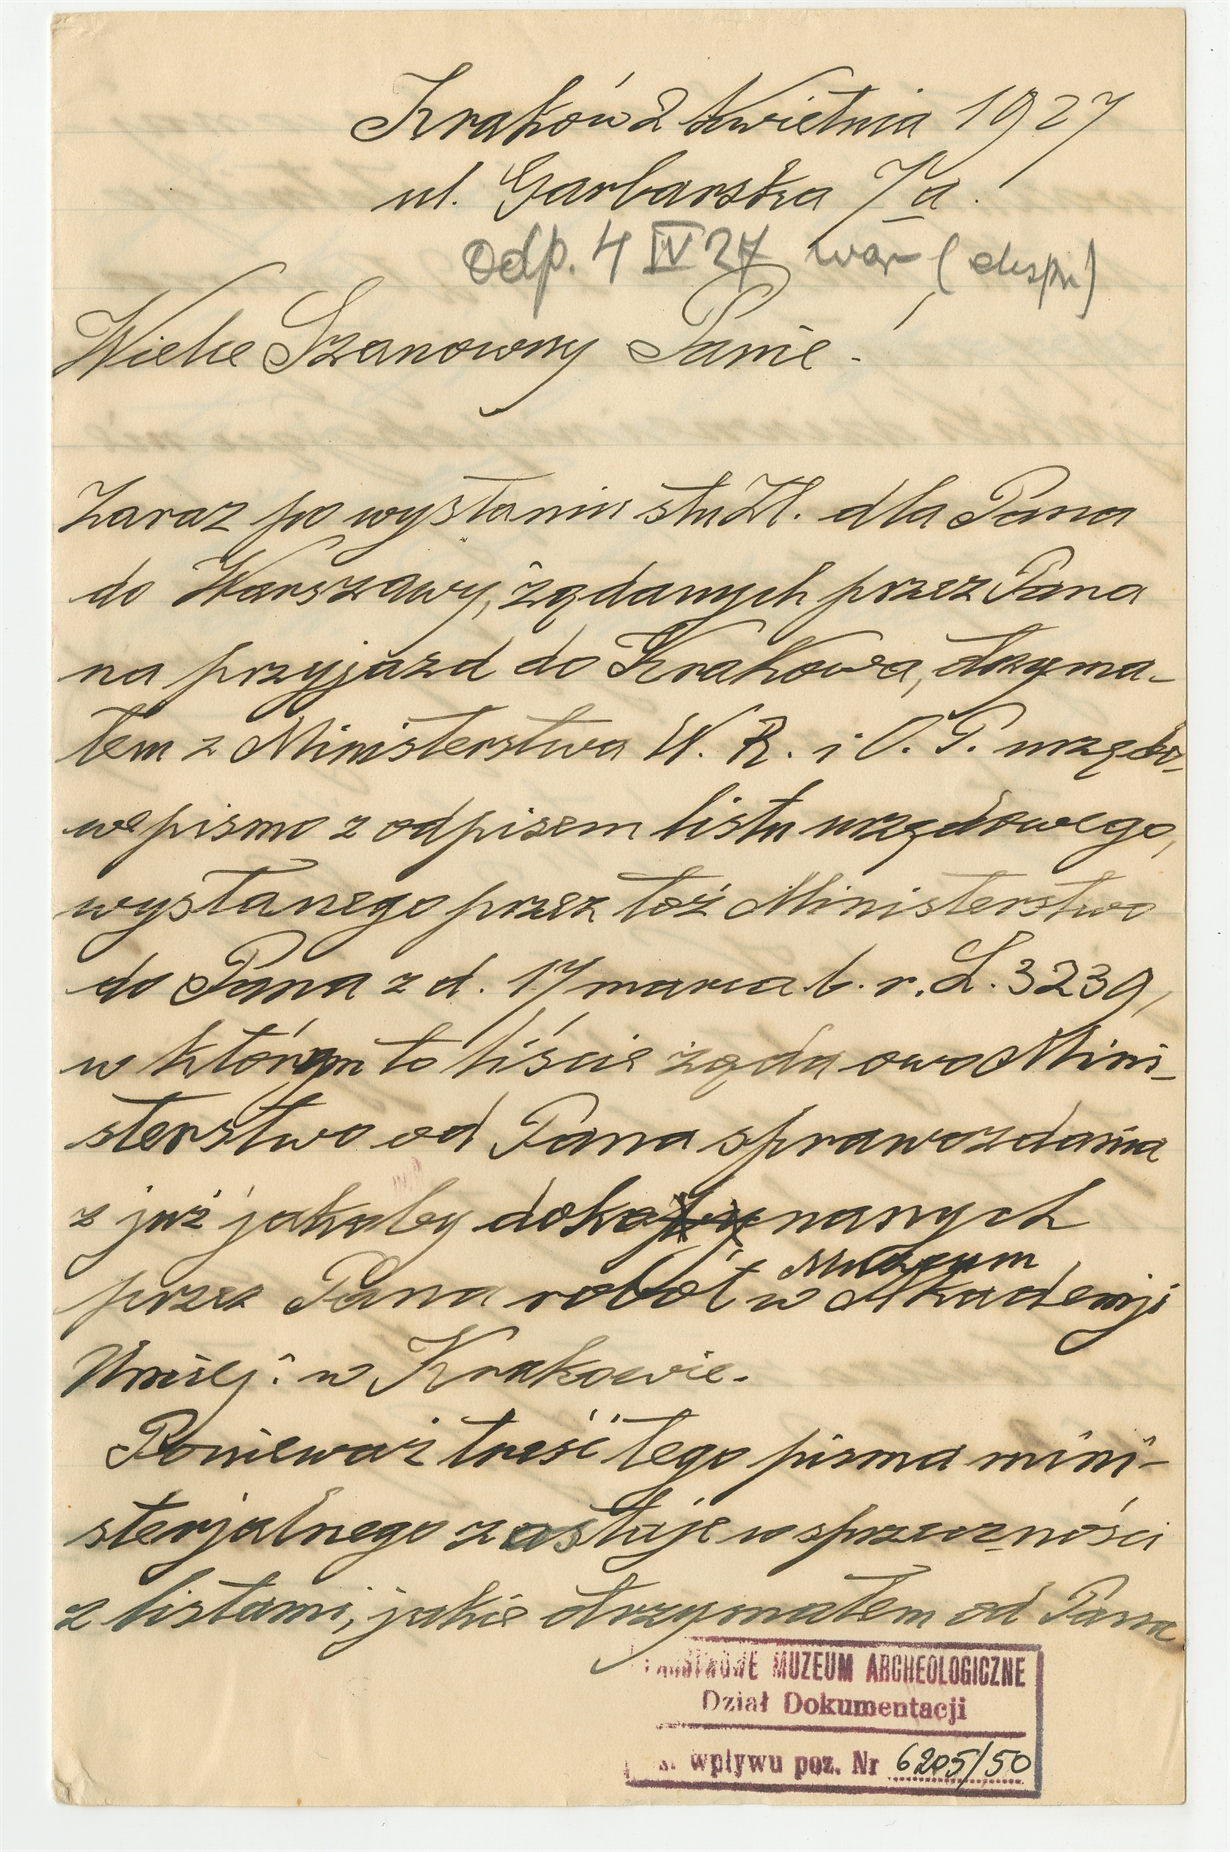 Kraków 2 kwietnia 1927
ul. Garbarska 7a.
Odp. 4 IV 27
Wielce Szanowny Panie!
Zaraz po wysłaniu stu Zł. dla Pana
do Warszawy, żądanych przez Pana
na przyjazd do Krakowa, otrzyma-
łem z Ministerstwa W. R. i O. P. urzędo-
we pismo z odpisem listu urzędowego,
wysłanego przez toż Ministerstwo
do Pana z d. 17 marca b. r. L. 3239,
w którym to liście żąda owo Mini-
sterstwo od Pana sprawozdania
z już jakoby dokonanych
przez Pana robót w Muzeum Akademji
Umiej. w Krakowie.
Ponieważ treść tego pisma mini-
sterjalnego zostaje w sprzeczności
z listami, jakie otrzymałem od Pana
PAŃSTWOWE MUZEUM ARCHEOLOGICZNE
Dział Dokumentacji
wpływu poz. Nr 6205/50